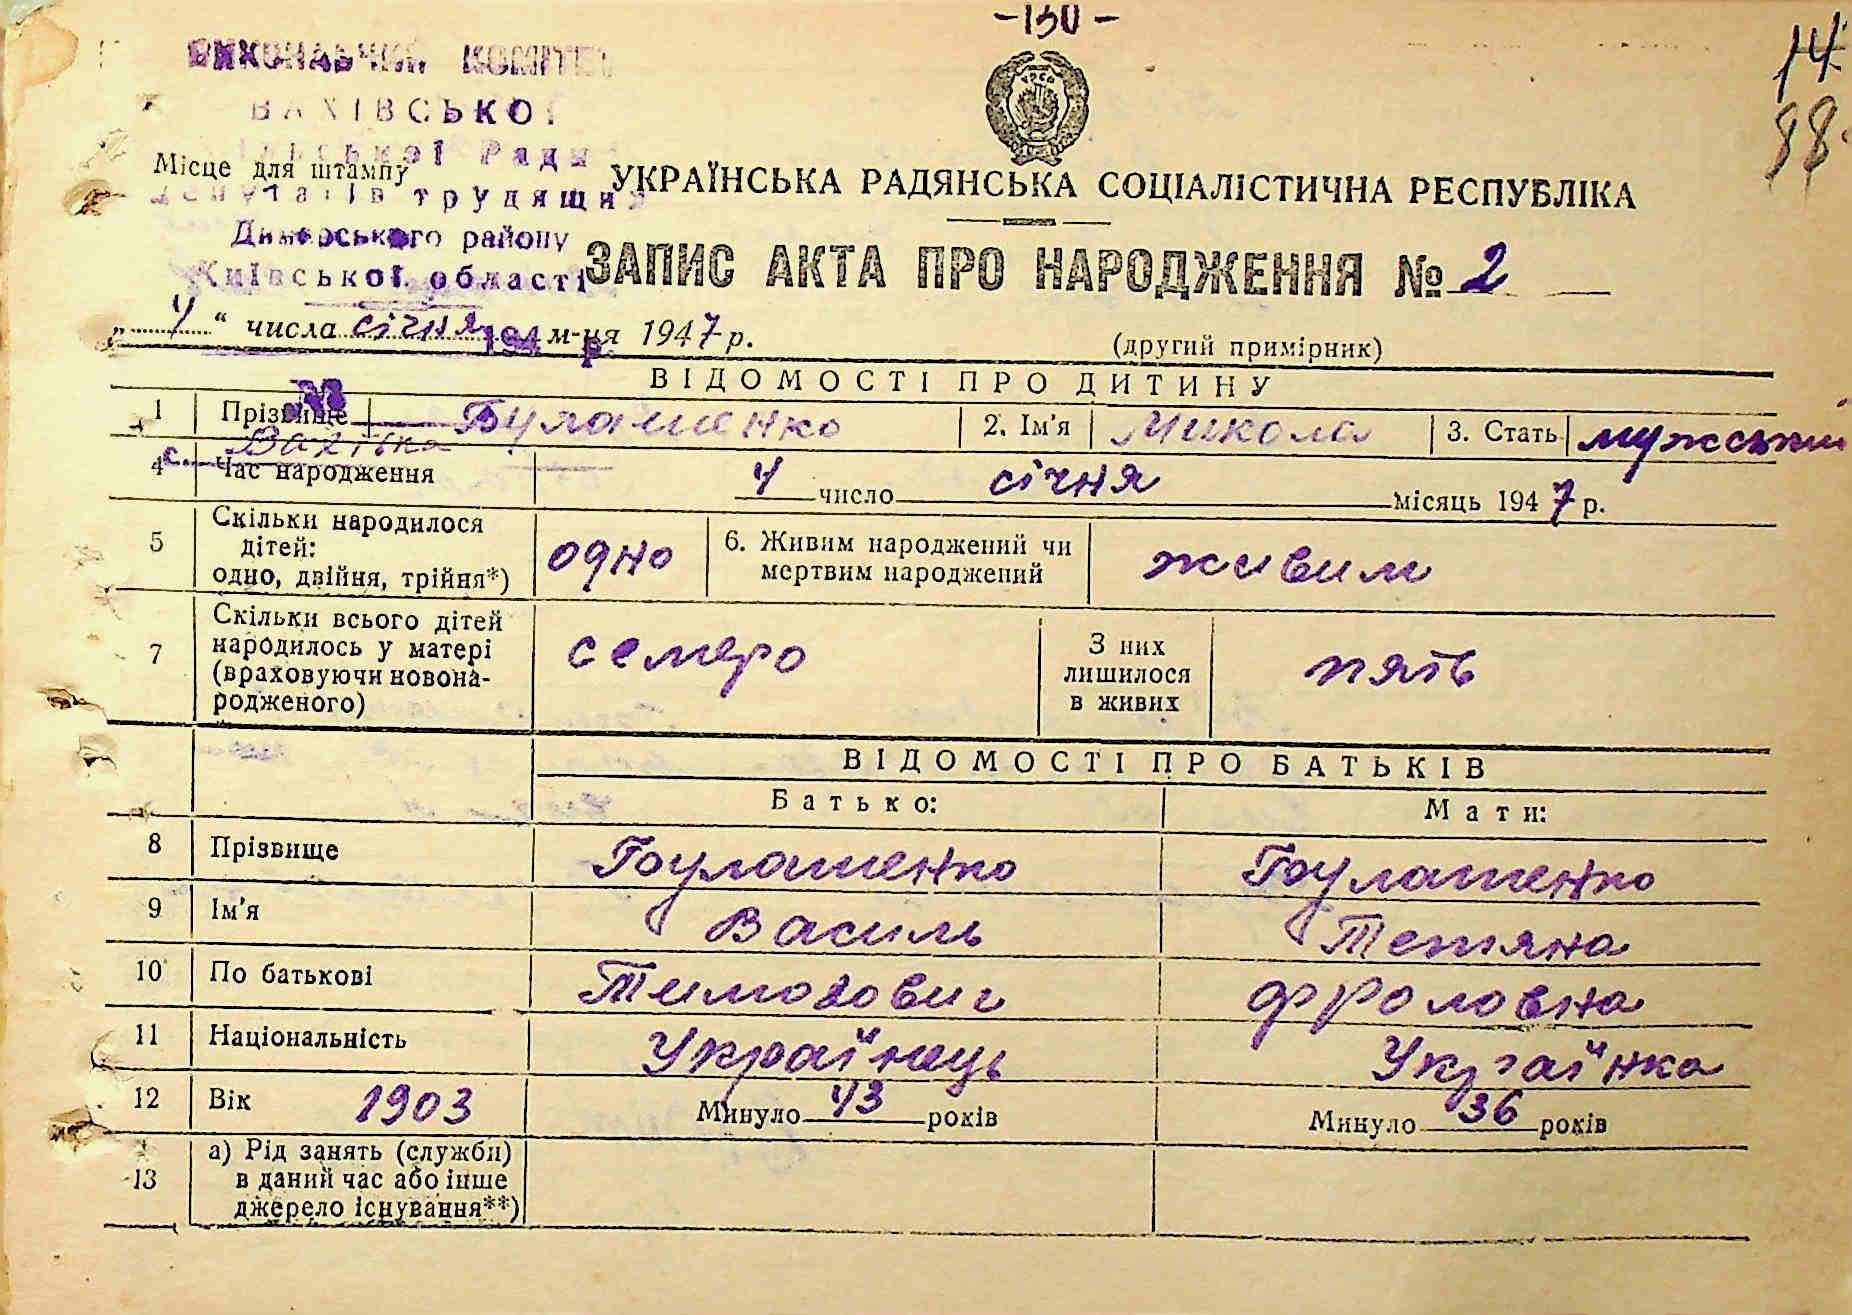 -130-
14
88
ВИКОНАВЧИЙ КОМІТЕТ
ВАХІВСЬКОЇ
сільської Ради
депутатів трудящих
Димерського району
Київської області
194 р.
№
с. Вахівка
Місце для штампу
УКРАЇНСЬКА РАДЯНСЬКА СОЦІАЛІСТИЧНА РЕСПУБЛІКА
ЗАПИС АКТА ПРО НАРОДЖЕННЯ № 2
„ 4 “ числа січня м-ця 1947 р.
(другий примірник)
ВІДОМОСТІ ПРО ДИТИНУ
1 Прізвище Булашенко 2. Ім'я Микола 3. Стать мужський
4 Час народження 4 число січня місяць 1947 р.
5 Скільки народилося дітей: одно, двійня, трійня*) одно 6. Живим народжений чи мертвим народжений живим
7 Скільки всього дітей народилось у матері (враховуючи новонародженого) семеро З них лишилося в живих пять
ВІДОМОСТІ ПРО БАТЬКІВ
Батько: Мати:
8 Прізвище Булашенко Булашенко
9 Ім'я Василь Тетяна
10 По батькові Тимохович Фроловна
11 Національність Українець Українка
12 Вік 1903 Минуло 43 років Минуло 36 років
13 а) Рід занять (служби) в даний час або інше джерело існування**)